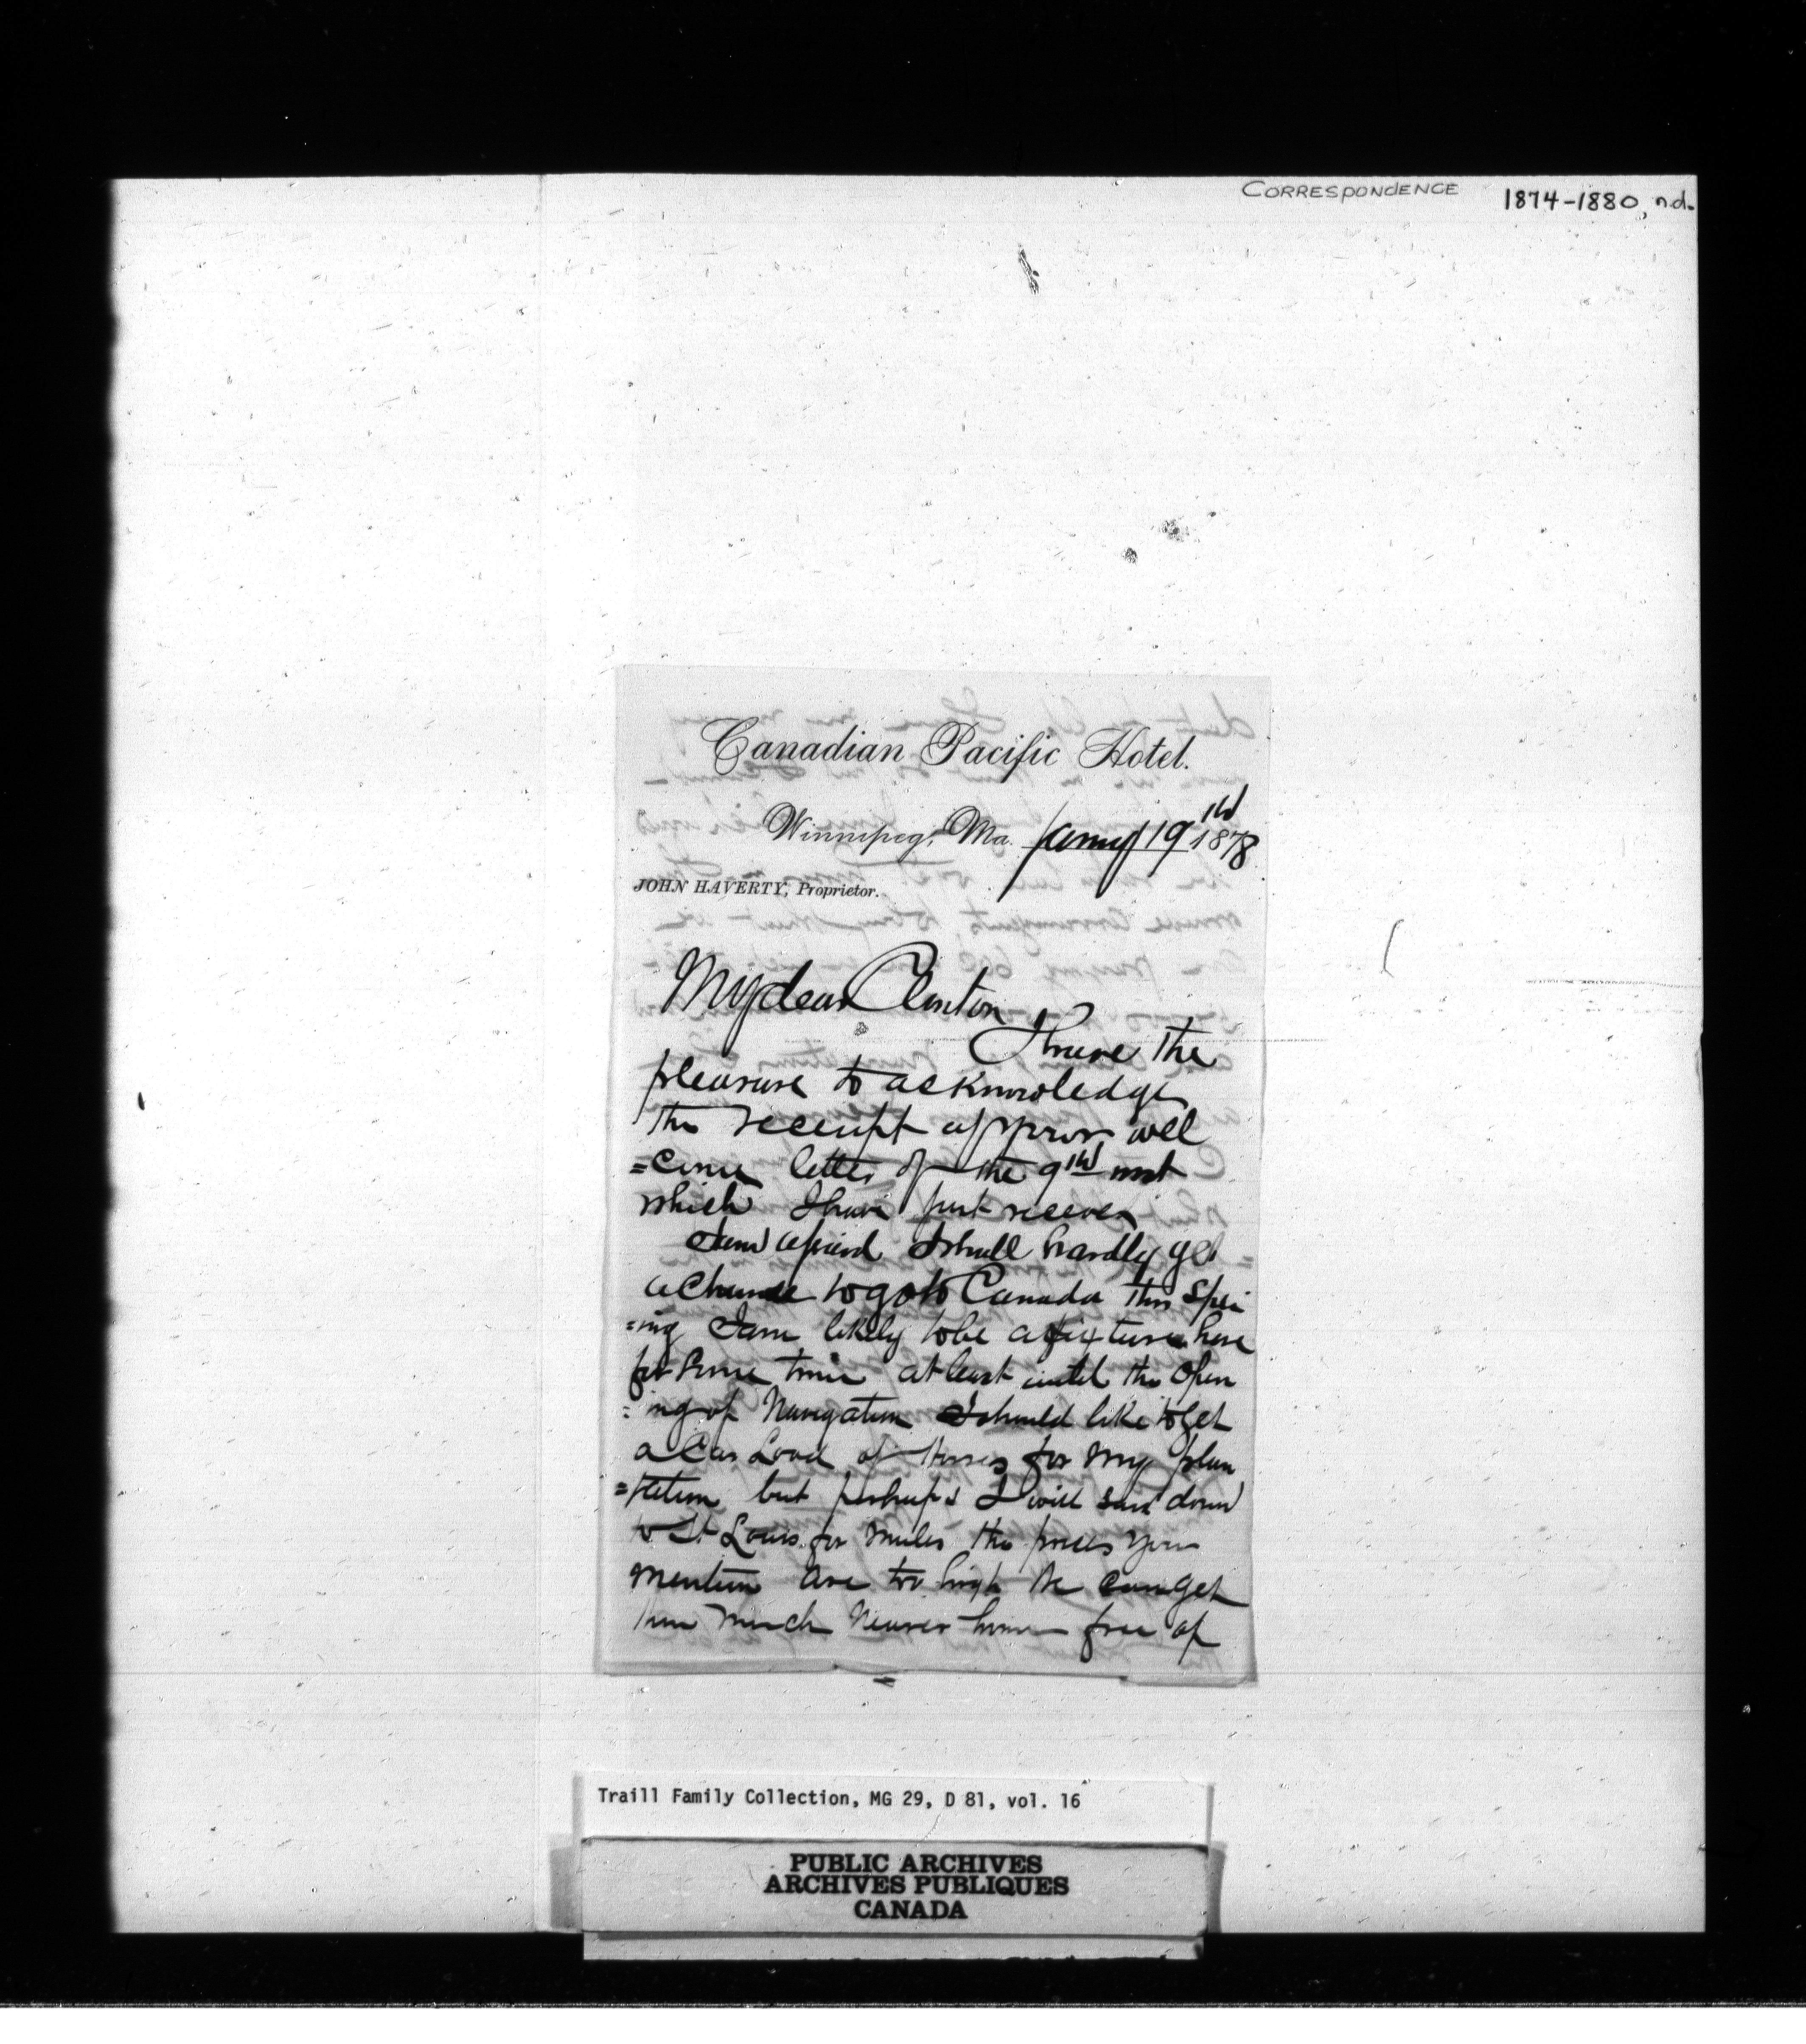 CORRESPONDENCE 1874-1880, n.d.
Canadian Pacific Hotel.
Winnipeg, Ma. Jany 19th 1878
JOHN HAVERTY, Proprietor.
My dear Clinton
I have the
pleasure to acknowledge
the receipt of your well
=come letter of the 9th inst
which I have just receved
I am afraid I shall hardly get
a chance to go to Canada this Spri
=ing I am likely to be a fixture here
for some time at least until the Open
=ing of Navigation I should like to get
a Car Load of Horses for my plan
=tation but perhaps I will send down
to St Louis for mules the prices you
mention are too high We can get
them much nearer home free of
Traill Family Collection, MG 29, D 81, vol. 16
PUBLIC ARCHIVES
ARCHIVES PUBLIQUES
CANADA